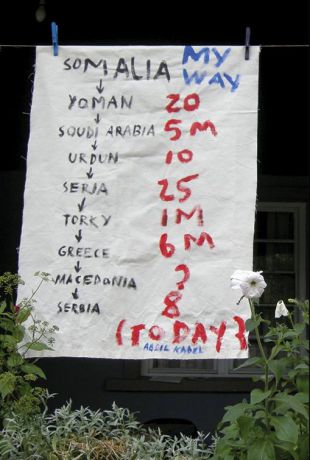 SOMALIA MY WAY
YOMAN 20
SOUDI ARABIA 5M
URDUN 10
SERJA 25
TORKY 1M
GREECE 6M
MACEDONIA ?
SERBIA 8
(TODAY}
ABDIL KADER